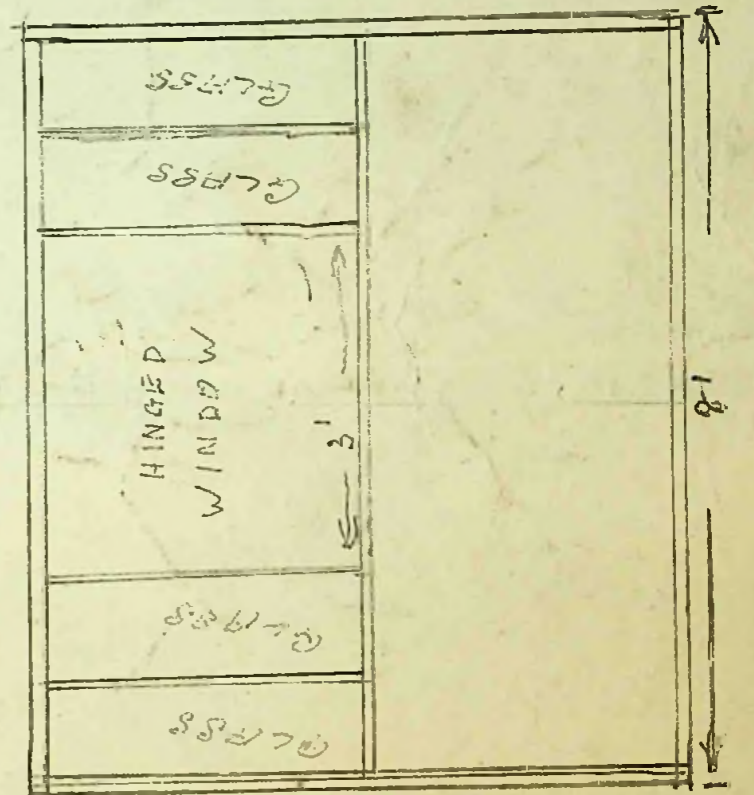 GLASS
GLASS
HINGED
WINDOW
GLASS
GLASS
3'
8'